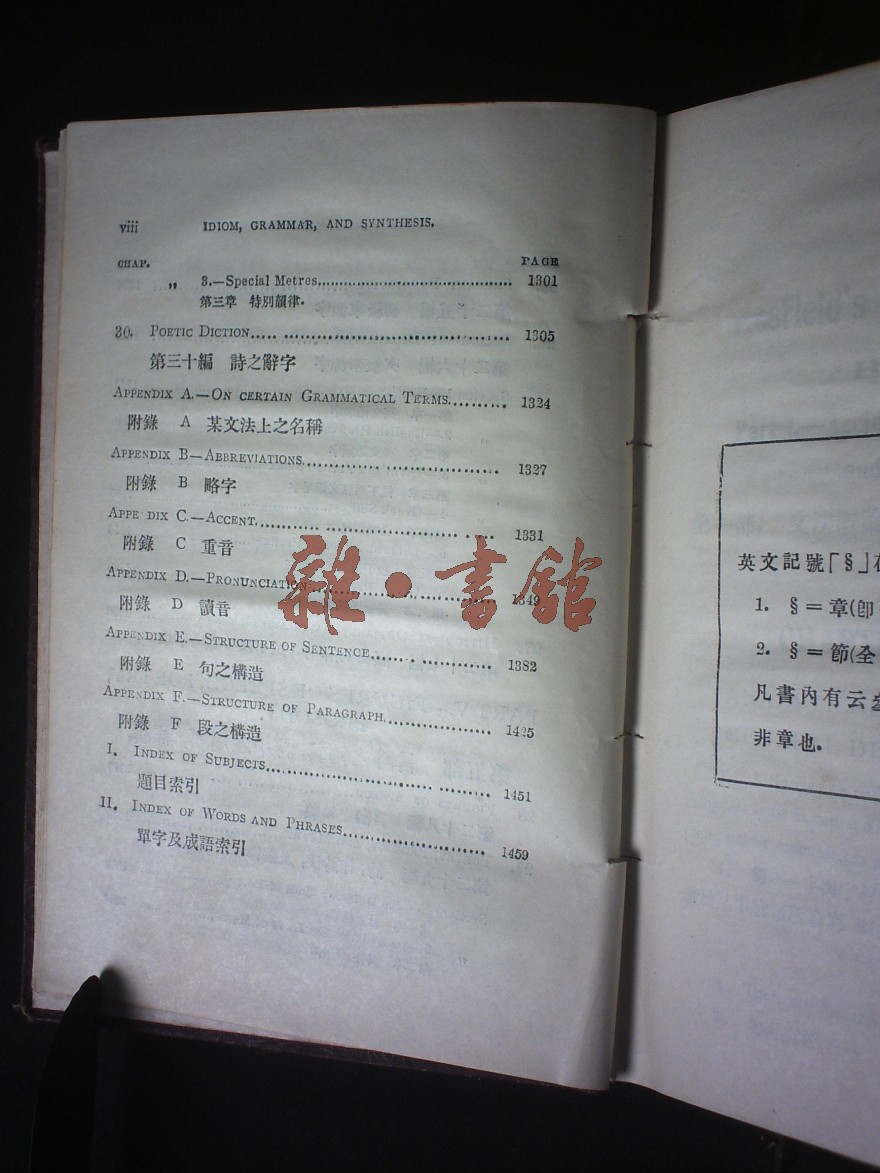 viii IDIOM, GRAMMAR, AND SYNTHESIS.
CHAP. PAGE
„ 3.—Special Metres 1301
第三章 特別韻律.
30. POETIC DICTION 1305
第三十編 詩之辭字
APPENDIX A.—ON CERTAIN GRAMMATICAL TERMS 1324
附錄 A 某文法上之名稱
APPENDIX B—ABBREVIATIONS 1327
附錄 B 略字
APPE DIX C.—ACCENT 1331
附錄 C 重音
APPENDIX D.—PRONUNCIATION 1349
附錄 D 讀音
APPENDIX E.—STRUCTURE OF SENTENCE 1382
附錄 E 句之構造
APPENDIX F.—STRUCTURE OF PARAGRAPH 1425
附錄 F 段之構造
I. INDEX OF SUBJECTS 1451
題目索引
II. INDEX OF WORDS AND PHRASES 1459
單字及成語索引
雜·書館
英文記號「§」在
1. § = 章(卽
2. § = 節(全
凡書內有云
非章也.